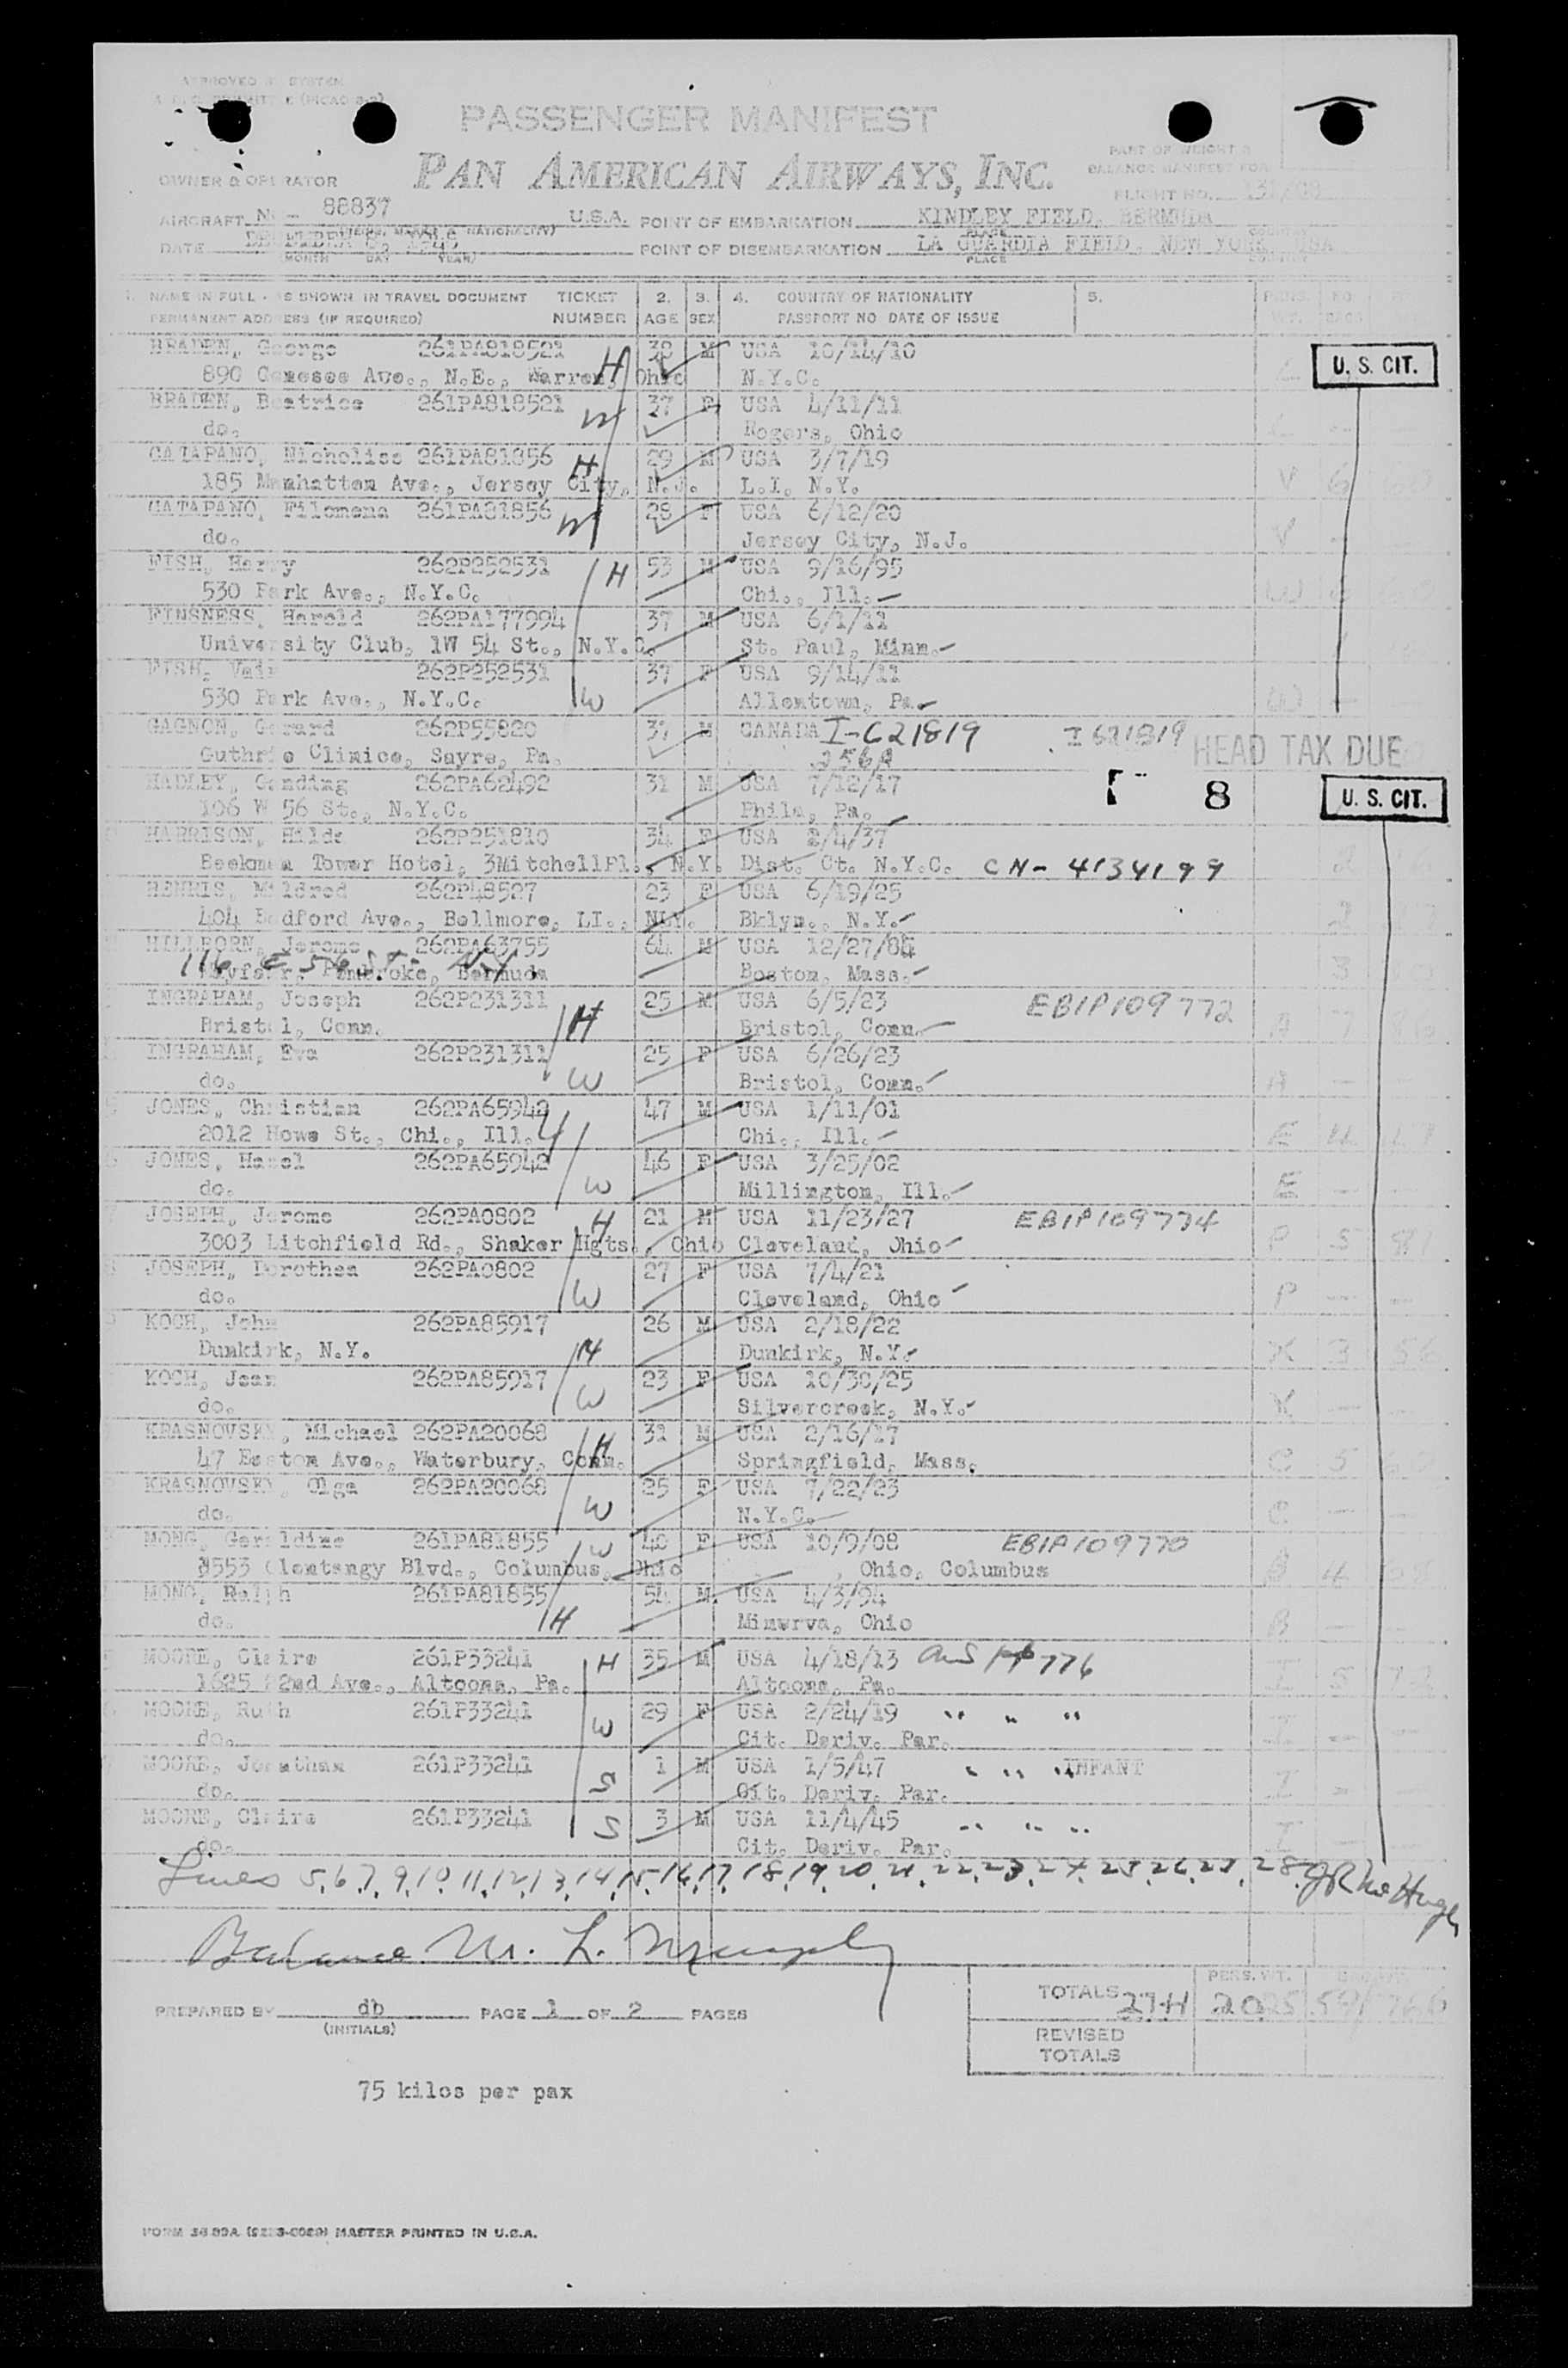 APPROVED BY SYSTEM
PASSENGER MANIFEST
PAN AMERICAN AIRWAYS, INC.
PART OF WEIGHT &
BALANCE MANIFEST FOR
OWNER & OPERATOR
FLIGHT NO. 131/08
AIRCRAFT N - 88837 U.S.A. POINT OF EMBARKATION KINDLEY FIELD, BERMUDA
NATIONALITY) PLACE COUNTRY
DATE 1948 POINT OF DISEMBARKATION LA GUARDIA FIELD, NEW YORK, USA
(MONTH DAY YEAR) PLACE COUNTRY
1. NAME IN FULL - AS SHOWN IN TRAVEL DOCUMENT TICKET 2. 3. 4. COUNTRY OF NATIONALITY 5. PERS. NO.
PERMANENT ADDRESS (IF REQUIRED) NUMBER AGE SEX PASSPORT NO DATE OF ISSUE WT. BAGS
BRADEN, George 261PA818521 H 38 M USA 10/14/10
U. S. CIT.
890 Genesee Ave., N.E., Warren, Ohio N.Y.C.
BRADEN, Beatrice 261PA818521 W 37 F USA 4/11/11
do. Rogers, Ohio
CATAPANO, Nicholise 261PA81856 H 29 M USA 3/7/19
185 Manhattan Ave., Jersey City, N.J. L.I. N.Y. V 6
CATAPANO, Filomena 261PA81856 W 28 F USA 6/12/20
do. Jersey City, N.J. V
FISH, Harry 262P252531 H 53 M USA 9/16/95
530 Park Ave., N.Y.C. Chi., Ill. W
FINSNESS, Harold 262PA177994 37 M USA 6/1/11
University Club, 1W 54 St., N.Y.C. St. Paul, Minn.
FISH, 262P252531 37 F USA 9/14/11
530 Park Ave., N.Y.C. W Allentown, Pa. W
GAGNON, Gerard 262P55820 37 M CANADA I-621819 I 621819
HEAD TAX DUE
Guthrie Clinice, Sayre, Pa. 256A
HADLEY, 262PA62492 31 M USA 7/12/17 8 U. S. CIT.
106 W 56 St., N.Y.C. Phila, Pa.
HARRISON, Hilda 262P251810 34 F USA 2/4/37
Beekman Tower Hotel, 3MitchellPl., N.Y. Dist. Ct. N.Y.C. CN- 4134199 2
HENRIS, Mildred 262P48527 23 F USA 6/19/25
404 Bedford Ave., Bellmore, LI., NLY. Bklyn., N.Y. 2
HILLBORN, Jerome 262PA63755 64 M USA 12/27/84
116 E 56 St - N.Y.
Pembroke, Bermuda Boston, Mass. 3
INGRAHAM, Joseph 262P231311 25 M USA 6/5/23 EB1P109772
Bristol, Conn. H Bristol, Conn. A 7
INGRAHAM, Eva 262P231311 25 F USA 6/26/23
do. W Bristol, Conn. A
JONES, Christian 262PA65942 47 M USA 1/11/01
2012 Howe St., Chi., Ill. H Chi., Ill. E 4
JONES, Hazel 262PA65942 46 F USA 3/25/02
do. W Millington, Ill. E
JOSEPH, Jerome 262PA0802 H 21 M USA 11/23/27 EB1P109774
3003 Litchfield Rd., Shaker Hgts., Ohio Cleveland, Ohio P 5
JOSEPH, Dorothea 262PA0802 27 F USA 7/4/21
do. W Cleveland, Ohio P
KOCH, John 262PA85917 26 M USA 2/18/22
Dunkirk, N.Y. H Dunkirk, N.Y. K 3 56
KOCH, Jean 262PA85917 23 F USA 10/30/25
do. W Silvercreek, N.Y. K
KRASNOVSKY, Michael 262PA20068 31 M USA 2/16/17
47 Easton Ave., Waterbury, Conn. H Springfield, Mass. C 5
KRASNOVSKY, Olga 262PA20068 25 F USA 7/22/23
do. W N.Y.C. C
MONG, Geraldine 261PA81855 W 40 F USA 10/9/08 EB1P109770
3553 Olentangy Blvd., Columbus, Ohio , Ohio, Columbus 4
MONG, Ralph 261PA81855 54 M USA 4/3/94
do. H Minerva, Ohio B
MOORE, Claire 261P33241 H 35 M USA 4/18/13 776
1625 2nd Ave., Altoona, Pa. Altoona, Pa. I 5
MOORE, Ruth 261P33241 29 F USA 2/24/19 " " "
do. W Cit. Deriv. Par. I
MOORE, Jonathan 261P33241 1 M USA 1/5/47 " " " INFANT
do. S Cit. Deriv. Par. I
MOORE, Claire 261P33241 3 M USA 11/4/45 " " "
do. S Cit. Deriv. Par. I
Lines 5,6,7,9,10,11,12,13,14,15,16,17,18,19,20,21,22,23,24,25,26,27,28.
Balance M. L. Murphy
TOTALS 27+1 2025 59 766
PERS. WT.
PREPARED BY db PAGE 1 OF 2 PAGES
(INITIALS)
REVISED
TOTALS
75 kilos per pax
MASTER PRINTED IN U.S.A.